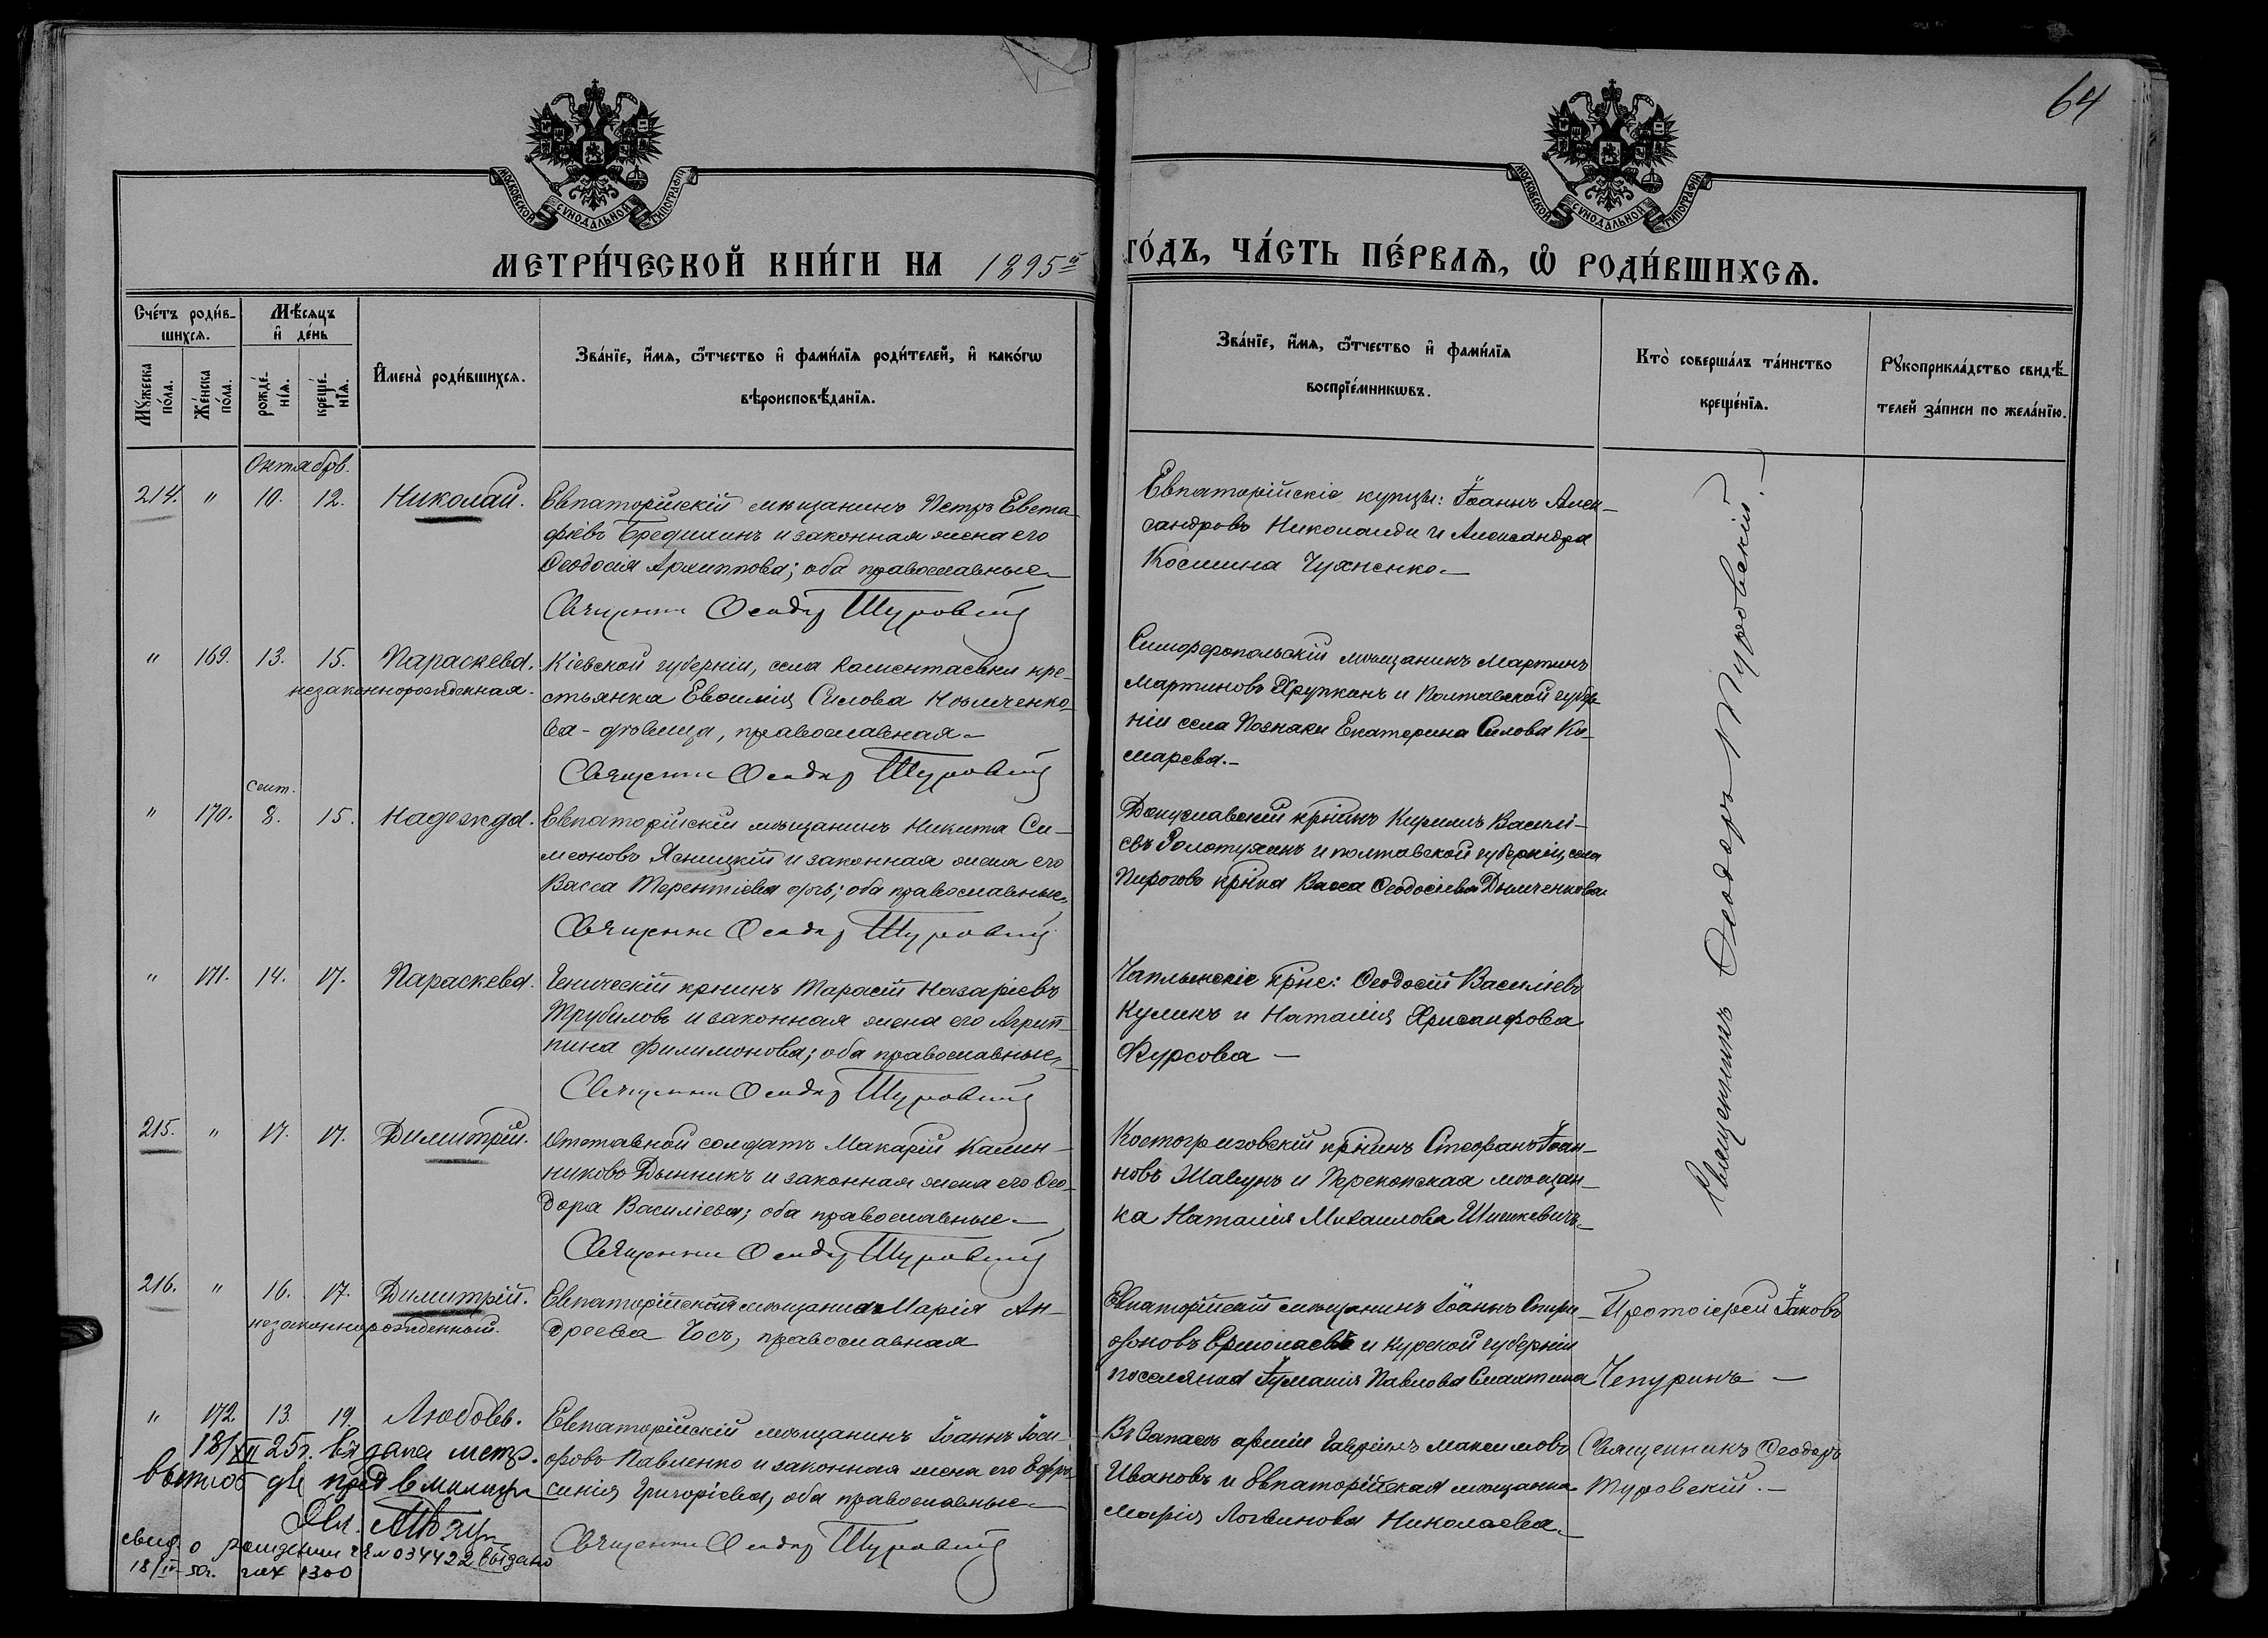 64
МОСКОВСКОЙ СѴНОДАЛЬНОЙ ТИПОГРАФІИ
МОСКОВСКОЙ СѴНОДАЛЬНОЙ ТИПОГРАФІИ
МЕТРИ́ЧЕСКОЙ КНИ́ГИ НА 1895й ГО́ДЪ, ЧА́СТЬ ПЕ́РВАѦ, Ѽ РОДИ́ВШИХСѦ.
Сче́тъ роди́в-
шихсѧ.
Мꙋ́жеска по́ла.
Же́нска по́ла.
Мѣ́сяцъ
и҆ де́нь
рожде́-
нїѧ.
креще́-
нїѧ.
И҆мена̀ роди́вшихсѧ.
Зва́нїе, и҆́мѧ, ѻ҆́тчество и҆ фами́лїѧ роди́телей, и҆ како́гѡ
вѣроисповѣ́данїѧ.
Зва́нїе, и҆́мѧ, ѻ҆́тчество и҆ фами́лїѧ
воспрїе́мникѡвъ.
Кто̀ соверша́лъ та́инство
креще́нїѧ.
Рꙋкоприкла́дство свидѣ́-
телей за́писи по жела́нїю.
Октябрь.
214. " 10. 12. Николай.
Евпаторійскій мѣщанинъ Петръ Евста-
фіевъ Бредихинъ и законная жена его
Ѳеодосія Архиппова; оба православные
Священникъ Ѳеодоръ Туровскій
Евпаторійскіе купцы: Іоаннъ Алек-
сандровъ Николаиди и Александра
Космина Чухненко
" 169. 13. 15. Параскева.
незаконнорожденная.
Кіевской губерніи, села кре-
стьянка Евѳимія Силова
ва - дѣвица, православная
Священникъ Ѳеодоръ Туровскій
Симферопольскій мѣщанинъ Мартинъ
Мартиновъ Хрупканъ и Полтавской губер-
ніи села Познаки Екатерина Силова Ко-
марева.
сент.
" 170. 8. 15. Надежда.
Евпаторійскій мѣщанинъ Никита Си-
меоновъ Ясницкій и законная жена его
Васса Терентіева оба православные
Священникъ Ѳеодоръ Туровскій
кр҃нинъ Кириллъ Василі-
евъ Золотухинъ и полтавской губерніи, села
Пирогово кр҃нка Васса Ѳеодосіева Дымченкова
" 171. 14. 17. Параскева.
Геническій кр҃нинъ Тарасій Назаріевъ
Трубиловъ и законная жена его Агрип-
пина Филимонова; оба православные
Священникъ Ѳеодоръ Туровскій
Чаплынскіе кр҃не: Ѳеодосій Василіевъ
Куликъ и Наталія Хрисанфова
Фурсова
215. " 17. 17. Димитрій.
Отставной солдатъ Макарій Калин-
никовъ Дынникъ и законная жена его Ѳео-
дора Василіева; оба православные
Священникъ Ѳеодоръ Туровскій
Костогрызовскій кр҃нинъ Стефанъ Іоан-
новъ Шавунъ и Перекопская мѣщан-
ка Наталія Михаилова Шишкевичъ
Священникъ Ѳеодоръ Туровскій.
216. " 16. 17. Димитрій.
незаконнорожденный.
Евпаторійская мѣщанка Марія Ан-
дреева Чосъ, православная
Евпаторійскій мѣщанинъ Іоаннъ Спири-
доновъ Ермолаевъ и Курской губерніи
поселянка Іуліанія Павлова
Протоіерей Іаковъ
Чепуринъ
" 172. 13. 19. Любовь.
Евпаторійскій мѣщанинъ Іоаннъ Іоси-
фовъ Павленко и законная жена его Евфро-
синія Григоріева, оба православные
Священникъ Ѳеодоръ Туровскій
Въ Запасѣ арміи Гавріилъ Максимовъ
Ивановъ и Евпаторійская мѣщанка
Марія Логвинова Николаева
Священникъ Ѳеодоръ
Туровскій.
18/XII 25г. выдана метр.
выпись для пред в милицию
свид о рождении № 034422 выдано
18/IV-50г. 1300